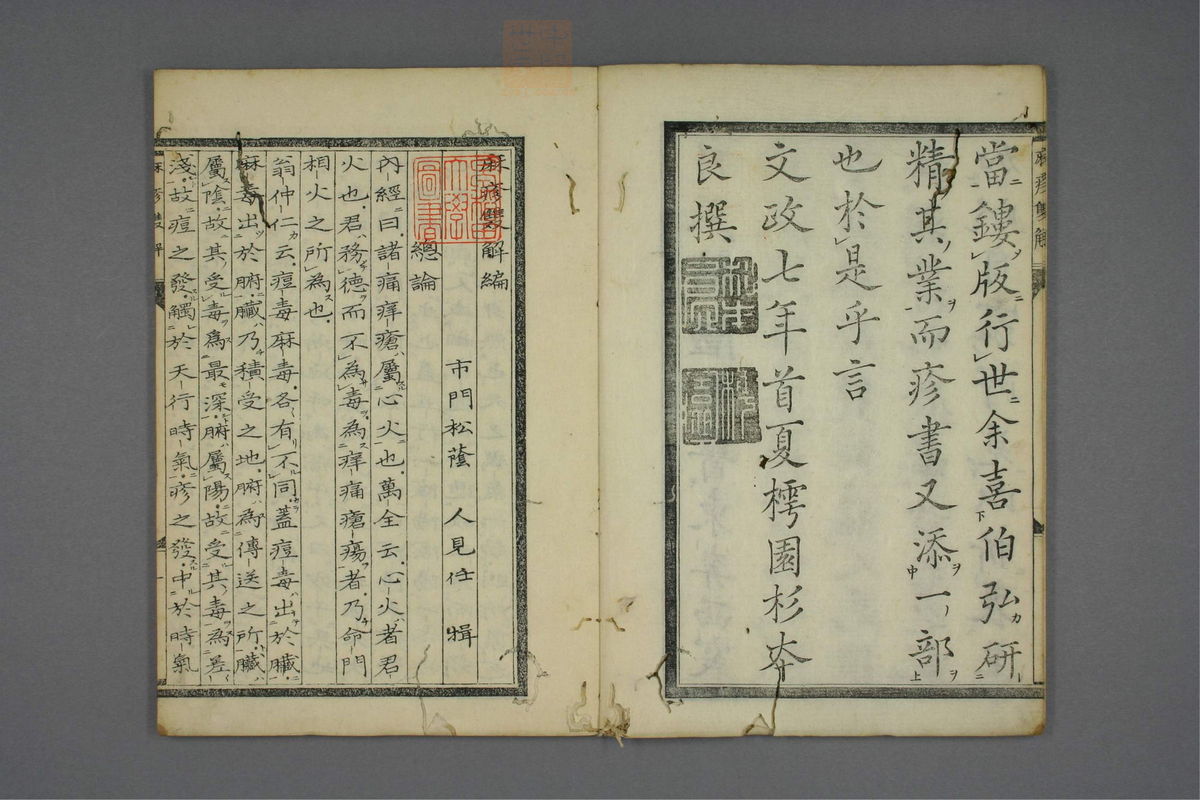 當鏤版行世余喜伯弘研
精其業而疹書又添一部
也於是乎言
文政七年首夏樗園杉本
良撰
麻疹雙解編
市門松蔭 人見任 輯
總論
內經曰諸痛痒瘡屬心火也萬全云心火者君
火也君務德而不為毒為痒痛瘡瘍者乃命門
相火之所為也
翁仲仁云痘毒麻毒各有不同蓋痘毒出於臟
麻毒出於腑臟乃積受之地腑為傳送之所臟
屬陰故其受毒為最深腑屬陽故受其毒為差
淺故痘之發觸於天行時氣疹之發中於時氣